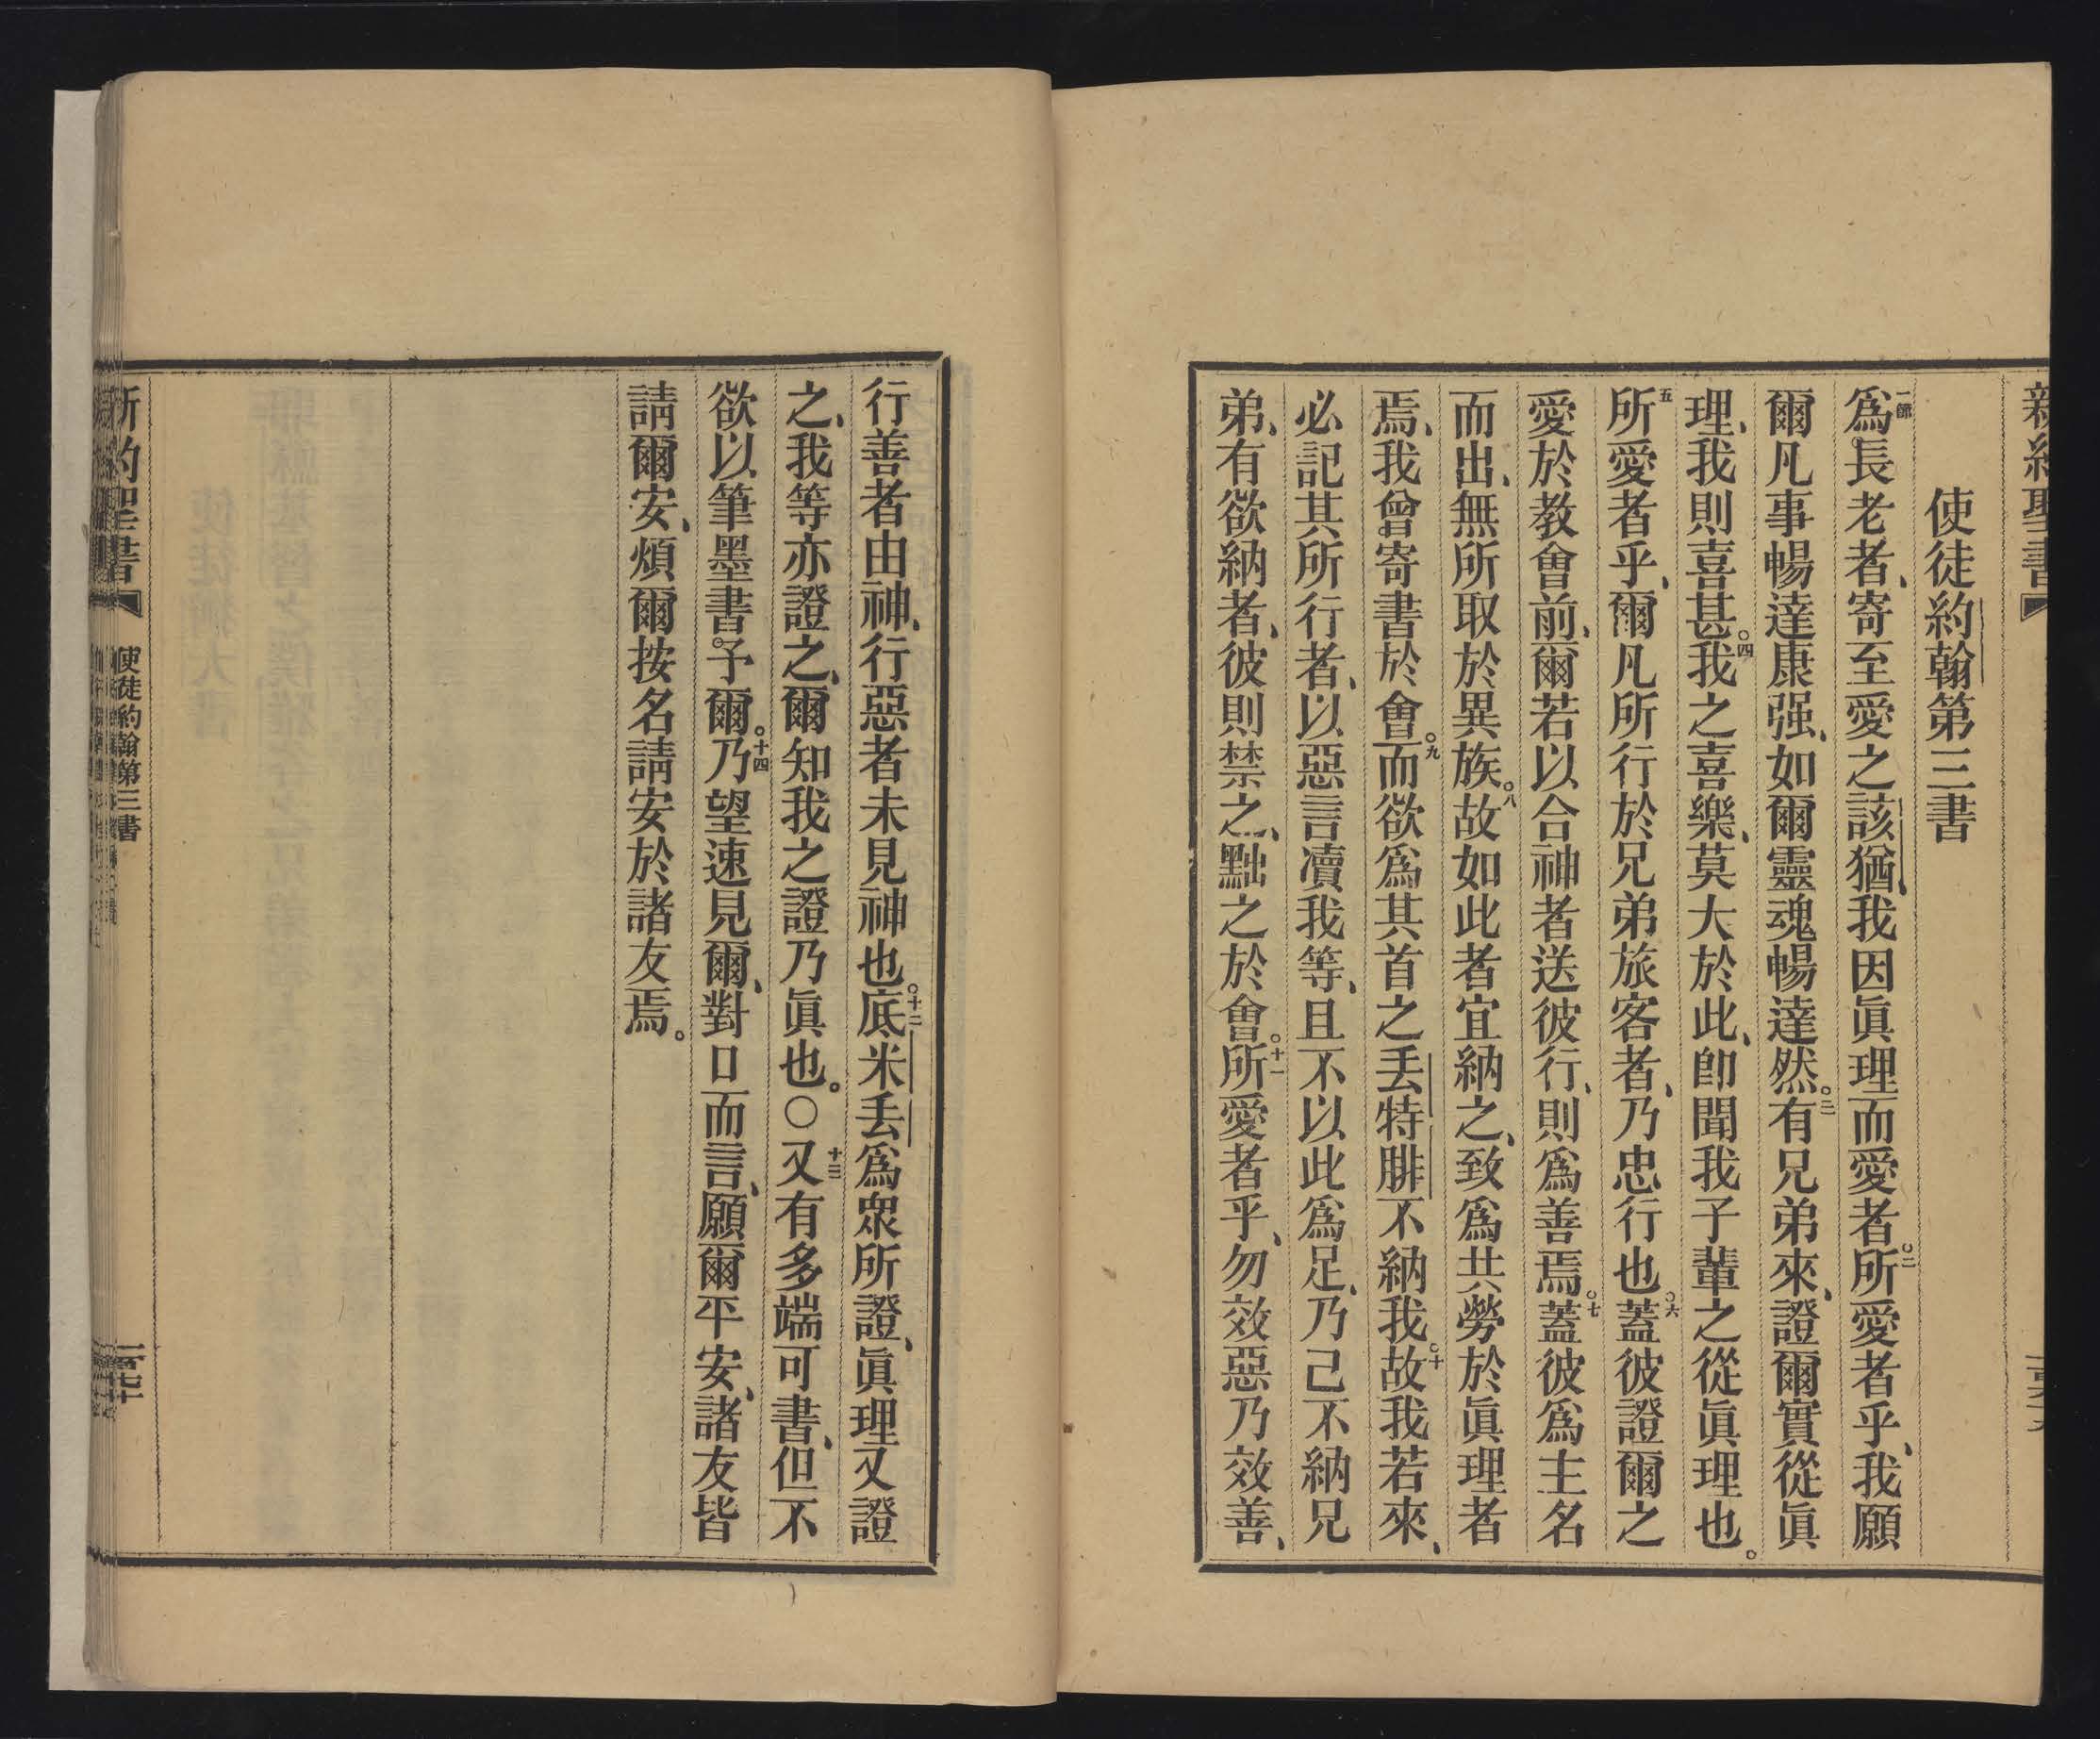 新約聖書
使徒約翰第三書
一節爲長老者、寄至愛之該猶、我因眞理而愛者。二所愛者乎、我願
爾凡事暢達康强、如爾靈魂暢達然。三有兄弟來、證爾實從眞
理、我則喜甚。四我之喜樂、莫大於此、卽聞我子輩之從眞理也。
五所愛者乎、爾凡所行於兄弟旅客者、乃忠行也。六蓋彼證爾之
愛於教會前、爾若以合神者送彼行、則爲善焉。七蓋彼爲主名
而出、無所取於異族。八故如此者宜納之、致爲共勞於眞理者
焉、我曾寄書於會。九而欲爲其首之丢特腓不納我。十故我若來、
必記其所行者、以惡言凟我等、且不以此爲足、乃己不納兄
弟、有欲納者、彼則禁之、黜之於會。十一所愛者乎、勿效惡乃效善、
行善者由神、行惡者未見神也。十二底米丢爲衆所證、眞理又證
之、我等亦證之、爾知我之證乃眞也。〇十三又有多端可書、但不
欲以筆墨書予爾。十四乃望速見爾、對口而言、願爾平安、諸友皆
請爾安、煩爾按名請安於諸友焉。
新約聖書
使徒約翰第三書